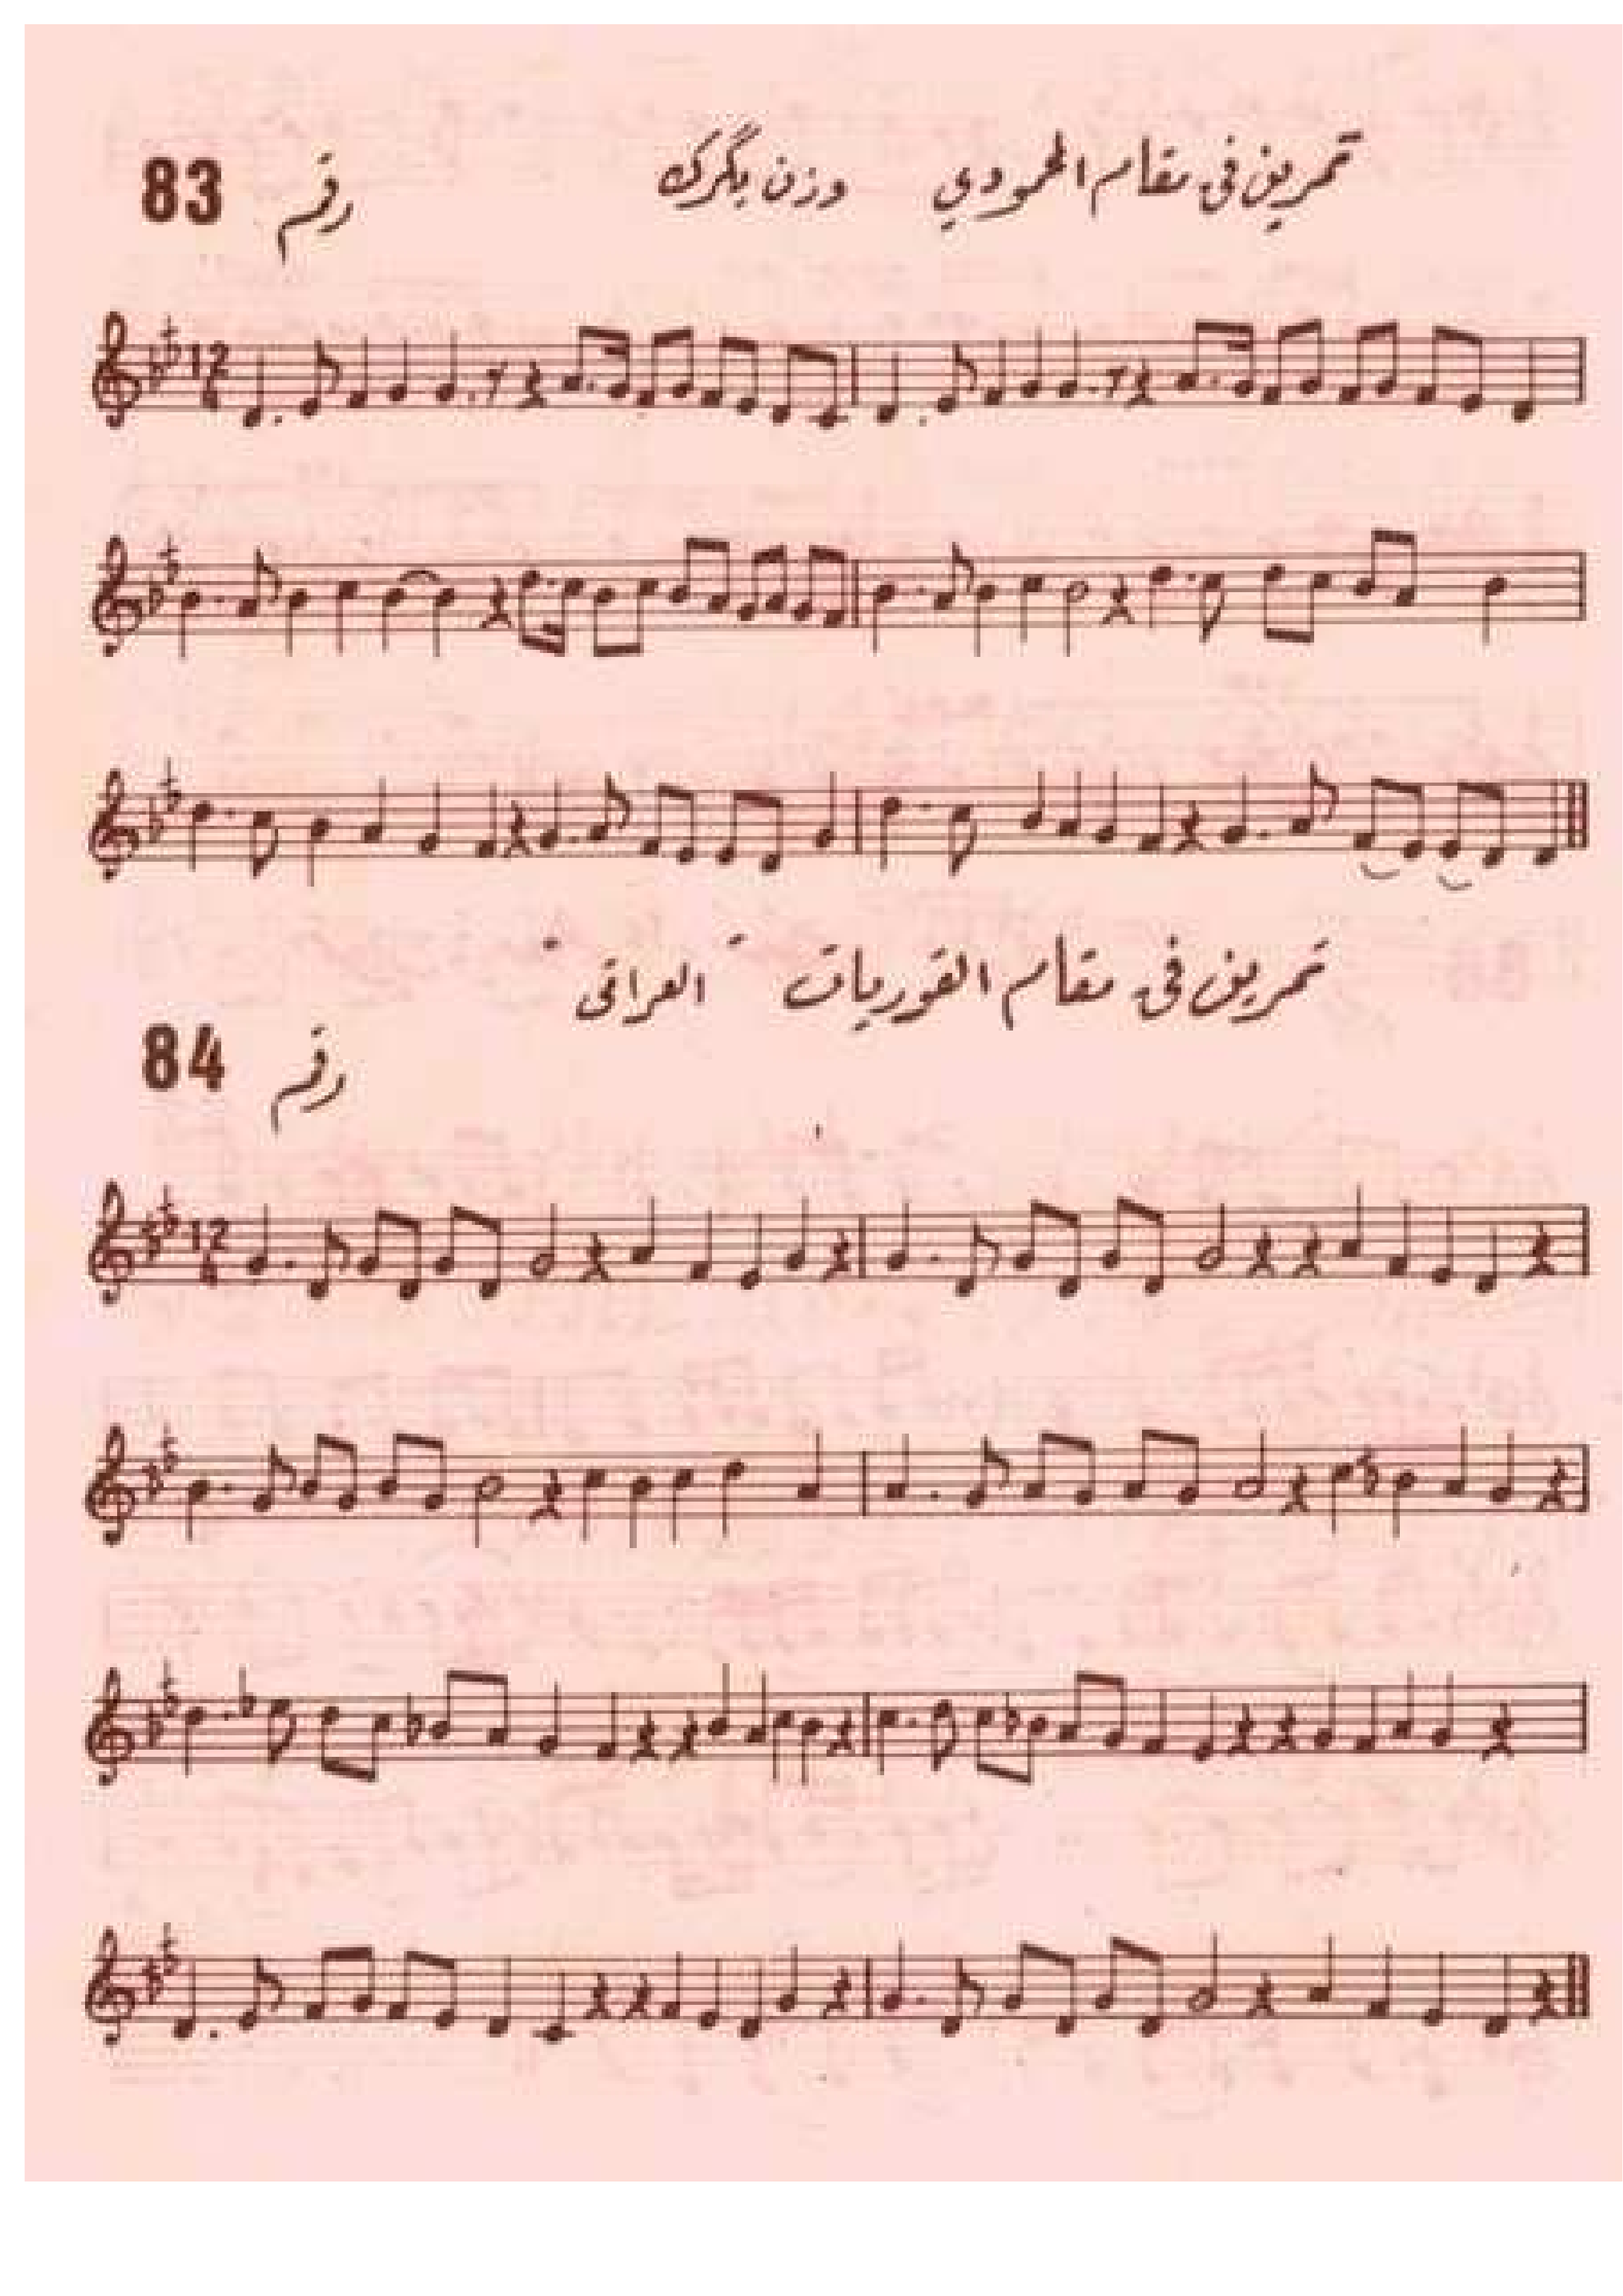 تمرين في مقام المحمودي وزن يگرك
رقم 83
12
4
تمرين في مقام القوريات "العراقي"
رقم 84
12
4